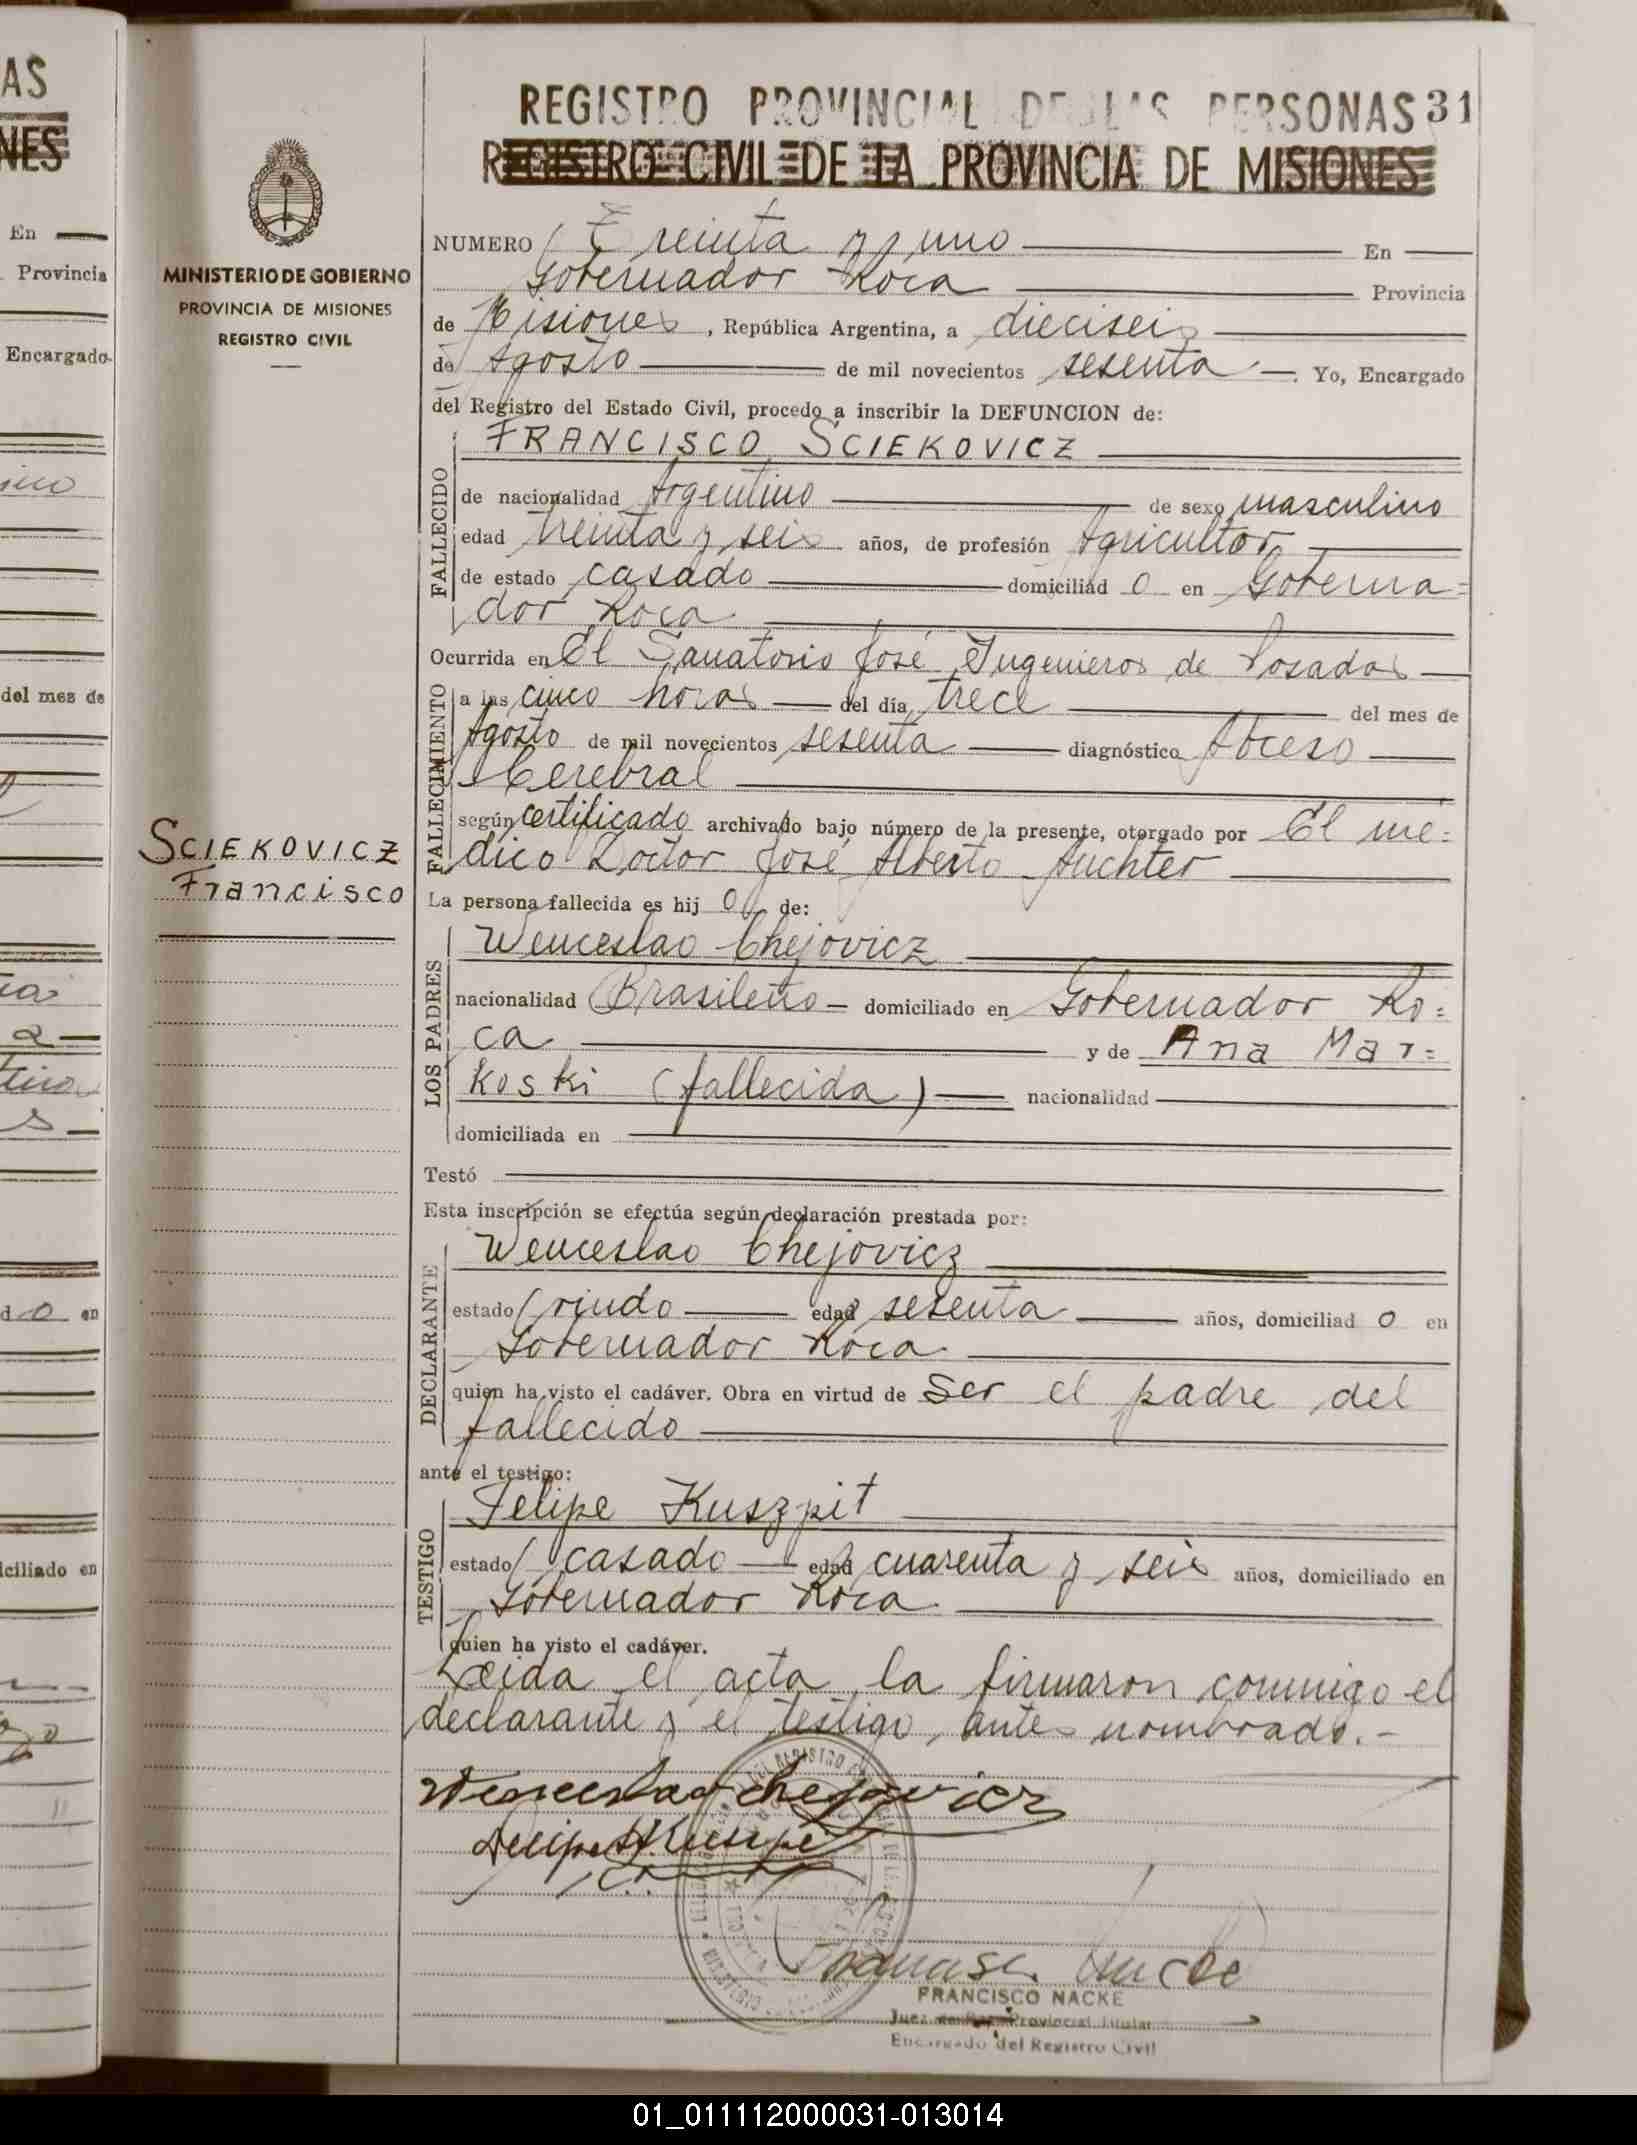 AS
NES
En
Provincia
Encargado
del mes de
d o en
iciliado en
MINISTERIO DE GOBIERNO
PROVINCIA DE MISIONES
REGISTRO CIVIL
SCIEKOVICZ
Francisco
REGISTRO PROVINCIAL DE LAS PERSONAS 31
REGISTRO CIVIL DE LA PROVINCIA DE MISIONES
NUMERO Treinta y uno En
Gobernador Roca Provincia
de Misiones, República Argentina, a dieciseis
de Agosto de mil novecientos sesenta. Yo, Encargado
del Registro del Estado Civil, procedo a inscribir la DEFUNCION de:
FALLECIDO
FRANCISCO SCIEKOVICZ
de nacionalidad Argentino de sexo masculino
edad treinta y seis años, de profesión Agricultor
de estado casado domiciliad o en Goberna=
dor Roca
Ocurrida en El Sanatorio José Ingenieros de Posadas
FALLECIMIENTO
a las cinco horas del día trece del mes de
Agosto de mil novecientos sesenta diagnóstico Abceso
Cerebral
según certificado archivado bajo número de la presente, otorgado por El mé=
dico Doctor José Alberto Auchter
La persona fallecida es hij o de:
LOS PADRES
Wenceslao Chejovicz
nacionalidad Brasileño domiciliado en Gobernador Ro=
ca y de Ana Mar=
koski (fallecida) nacionalidad
domiciliada en
Testó
Esta inscripción se efectúa según declaración prestada por:
DECLARANTE
Wenceslao Chejovicz
estado viudo edad sesenta años, domiciliad o en
Gobernador Roca
quien ha visto el cadáver. Obra en virtud de ser el padre del
fallecido
ante el testigo:
TESTIGO
Felipe Kuszpit
estado casado edad cuarenta y seis años, domiciliado en
Gobernador Roca
quien ha visto el cadáver.
Leida el acta la firmaron conmigo el
declarante y el testigo, antes nombrado.-
Wenceslao Chejovicz
FRANCISCO NACKE
Juez de Paz Provincial Titular
Encargado del Registro Civil
01_011112000031-013014